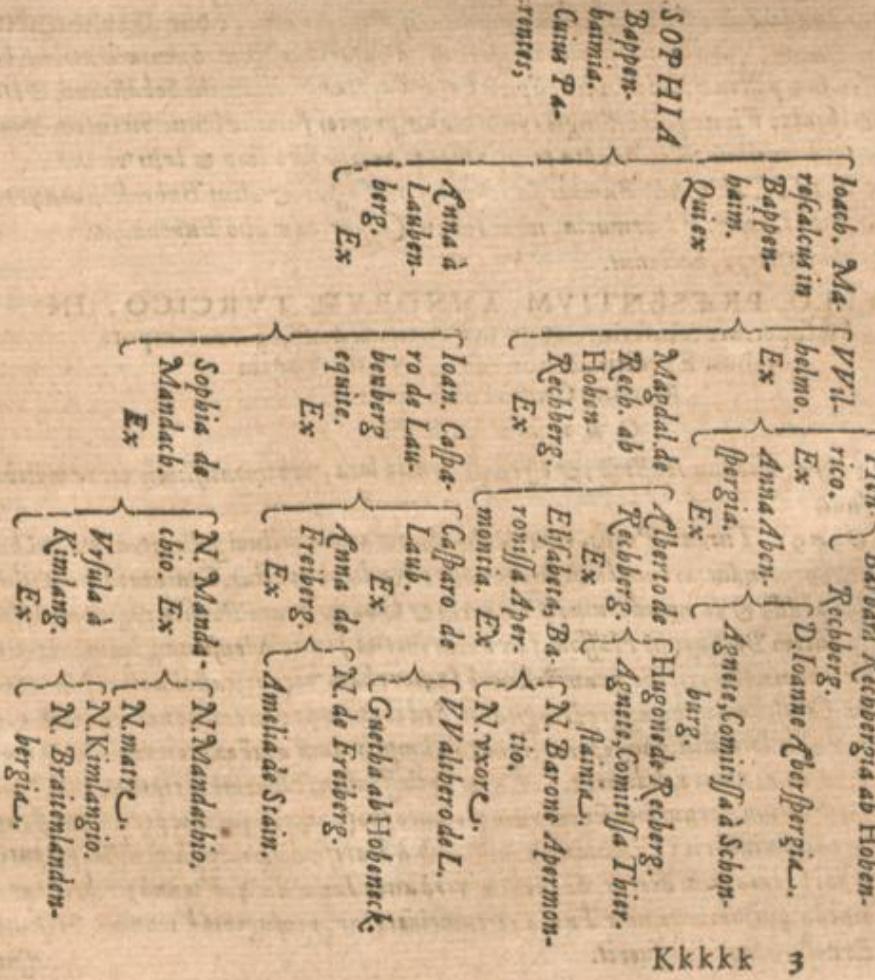 SOPHIA
Bappen-
haimia.
Cuius Pa-
rentes,
Ioach. Ma-
rescalcus in
Bappen-
haim.
Qui ex
Anna à
Lauben-
berg.
Ex
VVil-
helmo.
Ex
Magdal. de
Rech. ab
Hohen-
Rechberg
Ex
Ioan. Caspa-
ro de Lau-
benberg
equite.
Ex
Sophia de
Mandach.
Ex
rico.
Ex
Anna Aben-
spergia.
Ex
Alberto de
Rechberg.
Ex
Elisabeta, Ba-
ronissa Aper-
montia. Ex
Casparo de
Laub.
Ex
Anna de
Freiberg.
Ex
N. Manda-
chio. Ex
Vrsula à
Kimlang.
Ex
Barbara Rechbergia ab Hohen-
Rechberg.
D. Ioanne Aberspergia.
Agnete, Comitissa à Schon-
burg.
Hugone de Recberg.
Agnete, Comitissa Thier-
stainia.
N. Barone Apermon-
tio.
N. vxore.
VValthero de L.
Gnetha ab Hoheneck.
N. de Freiberg.
Amelia de Stain.
N. Mandachio.
N. matre.
N. Kimlangio.
N. Braitenlanden-
bergia.
Kkkkk 3